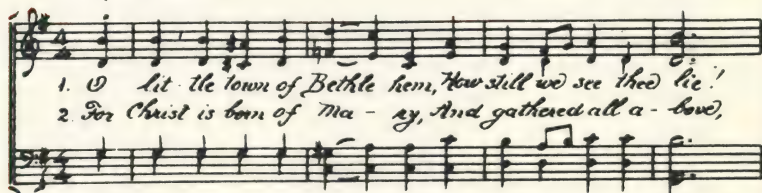 1. O lit-tle town of Bethle hem, How still we see thee lie!
2. For Christ is born of Ma-ry, And gathered all a-bove,